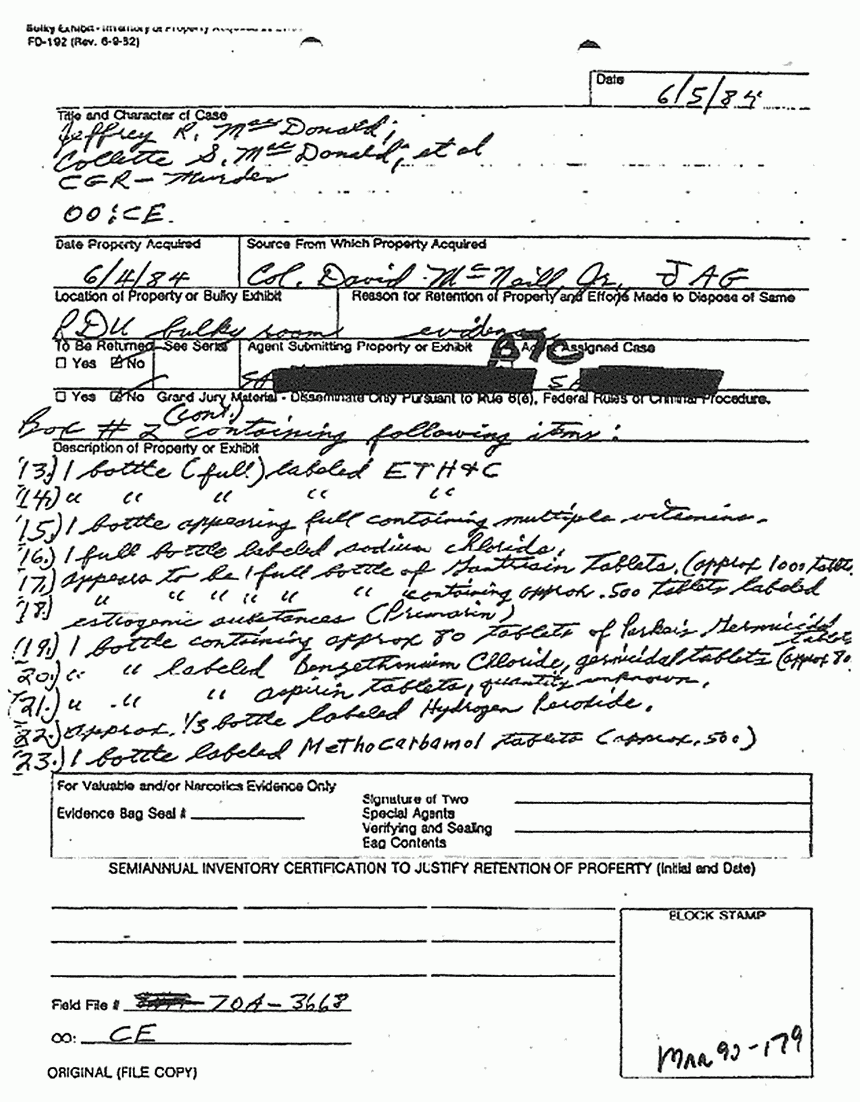 Bulky Exhibit - Inventory of Property Acquired
FD-192 (Rev. 6-9-82)
Date
6/5/84
Title and Character of Case
Jeffrey R. MacDonald;
Collette S. MacDonald; et al
CGR - Murder
OO: CE.
Date Property Acquired Source From Which Property Acquired
6/4/84 Col. David McNeill, Jr. JAG
Location of Property or Bulky Exhibit Reason for Retention of Property and Efforts Made to Dispose of Same
RDU bulky room evidence
To Be Returned See Serial Agent Submitting Property or Exhibit B7C Assigned Case
☐ Yes ☒ No SA SA
☐ Yes ☒ No Grand Jury Material - Disseminate Only Pursuant to Rule 6(e), Federal Rules of Criminal Procedure.
(cont.)
Box # 2 containing following items:
Description of Property or Exhibit
13.) 1 bottle (full) labeled ETH & C
14.) " " " " "
15.) 1 bottle appearing full containing multiple vitamins.
16.) 1 full bottle labeled sodium chloride.
17.) appears to be 1 full bottle of Gantrisin tablets. (approx 1000 tablets
18.) " " " " " " containing approx. 500 tablets labeled
estrogenic substances (Primarin)
19.) 1 bottle containing approx 80 tablets of Parke's Germicidal
tablets
20.) " " labeled Benzethonium Chloride, germicidal tablets (approx 80
21.) " " " aspirin tablets, quantity unknown.
22.) approx. 1/3 bottle labeled Hydrogen Peroxide.
23.) 1 bottle labeled Methocarbamol tablets (approx. 500)
For Valuable and/or Narcotics Evidence Only
Evidence Bag Seal #
Signature of Two
Special Agents
Verifying and Sealing
Bag Contents
SEMIANNUAL INVENTORY CERTIFICATION TO JUSTIFY RETENTION OF PROPERTY (Initial and Date)
BLOCK STAMP
Field File # 70A-3668
OO: CE
MRR 90-179
ORIGINAL (FILE COPY)